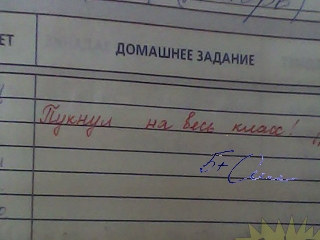 ЕТ
ДОМАШНЕЕ ЗАДАНИЕ
Пукнул на весь класс!
5+